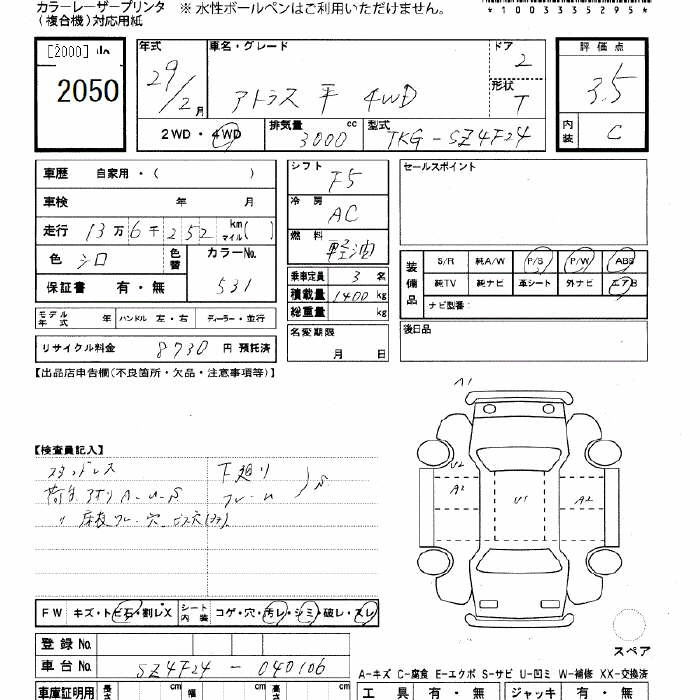 カラーレーザープリンタ ※ 水性ボールペンはご利用いただけません。
(複合機)対応用紙
*1003335295*
[2000]
2050
年式 29/2月
車名・グレード アトラス 平 4WD
ドア 2
形状 T
2WD・4WD
排気量 3000 cc
型式 TKG-SZ4F24
評価点 3.5
内装 C
車歴 自家用・( )
車検 年 月
走行 13万6千252 km マイル( )
色 シロ 色替 カラーNo. 531
保証書 有・無
モデル年式 年 ハンドル 左・右 ディーラー・並行
リサイクル料金 8730 円 預託済
シフト F5
冷房 AC
燃料 軽油
乗車定員 3 名
積載量 1400 kg
総重量 kg
名変期限 月 日
セールスポイント
装備品 S/R 純A/W P/S P/W ABS
純TV 純ナビ 革シート 外ナビ エアB
ナビ型番:
後日品
【出品店申告欄(不良箇所・欠品・注意事項等)】
【検査員記入】
スタッドレス 下廻り
荷台 アオリ A-U-S フレーム S
〃 床板ワレ・穴
A1
U2
A2 U1 A2
FW キズ・トビ石・割レX シート内装 コゲ・穴・汚レ・シミ・破レ・スレ
スペア
登録No.
車台No. SZ4F24-040106
A-キズ C-腐食 E-エクボ S-サビ U-凹ミ W-補修 XX-交換済
車庫証明用 長さ cm 幅 cm 高さ cm
工具 有・無 ジャッキ 有・無